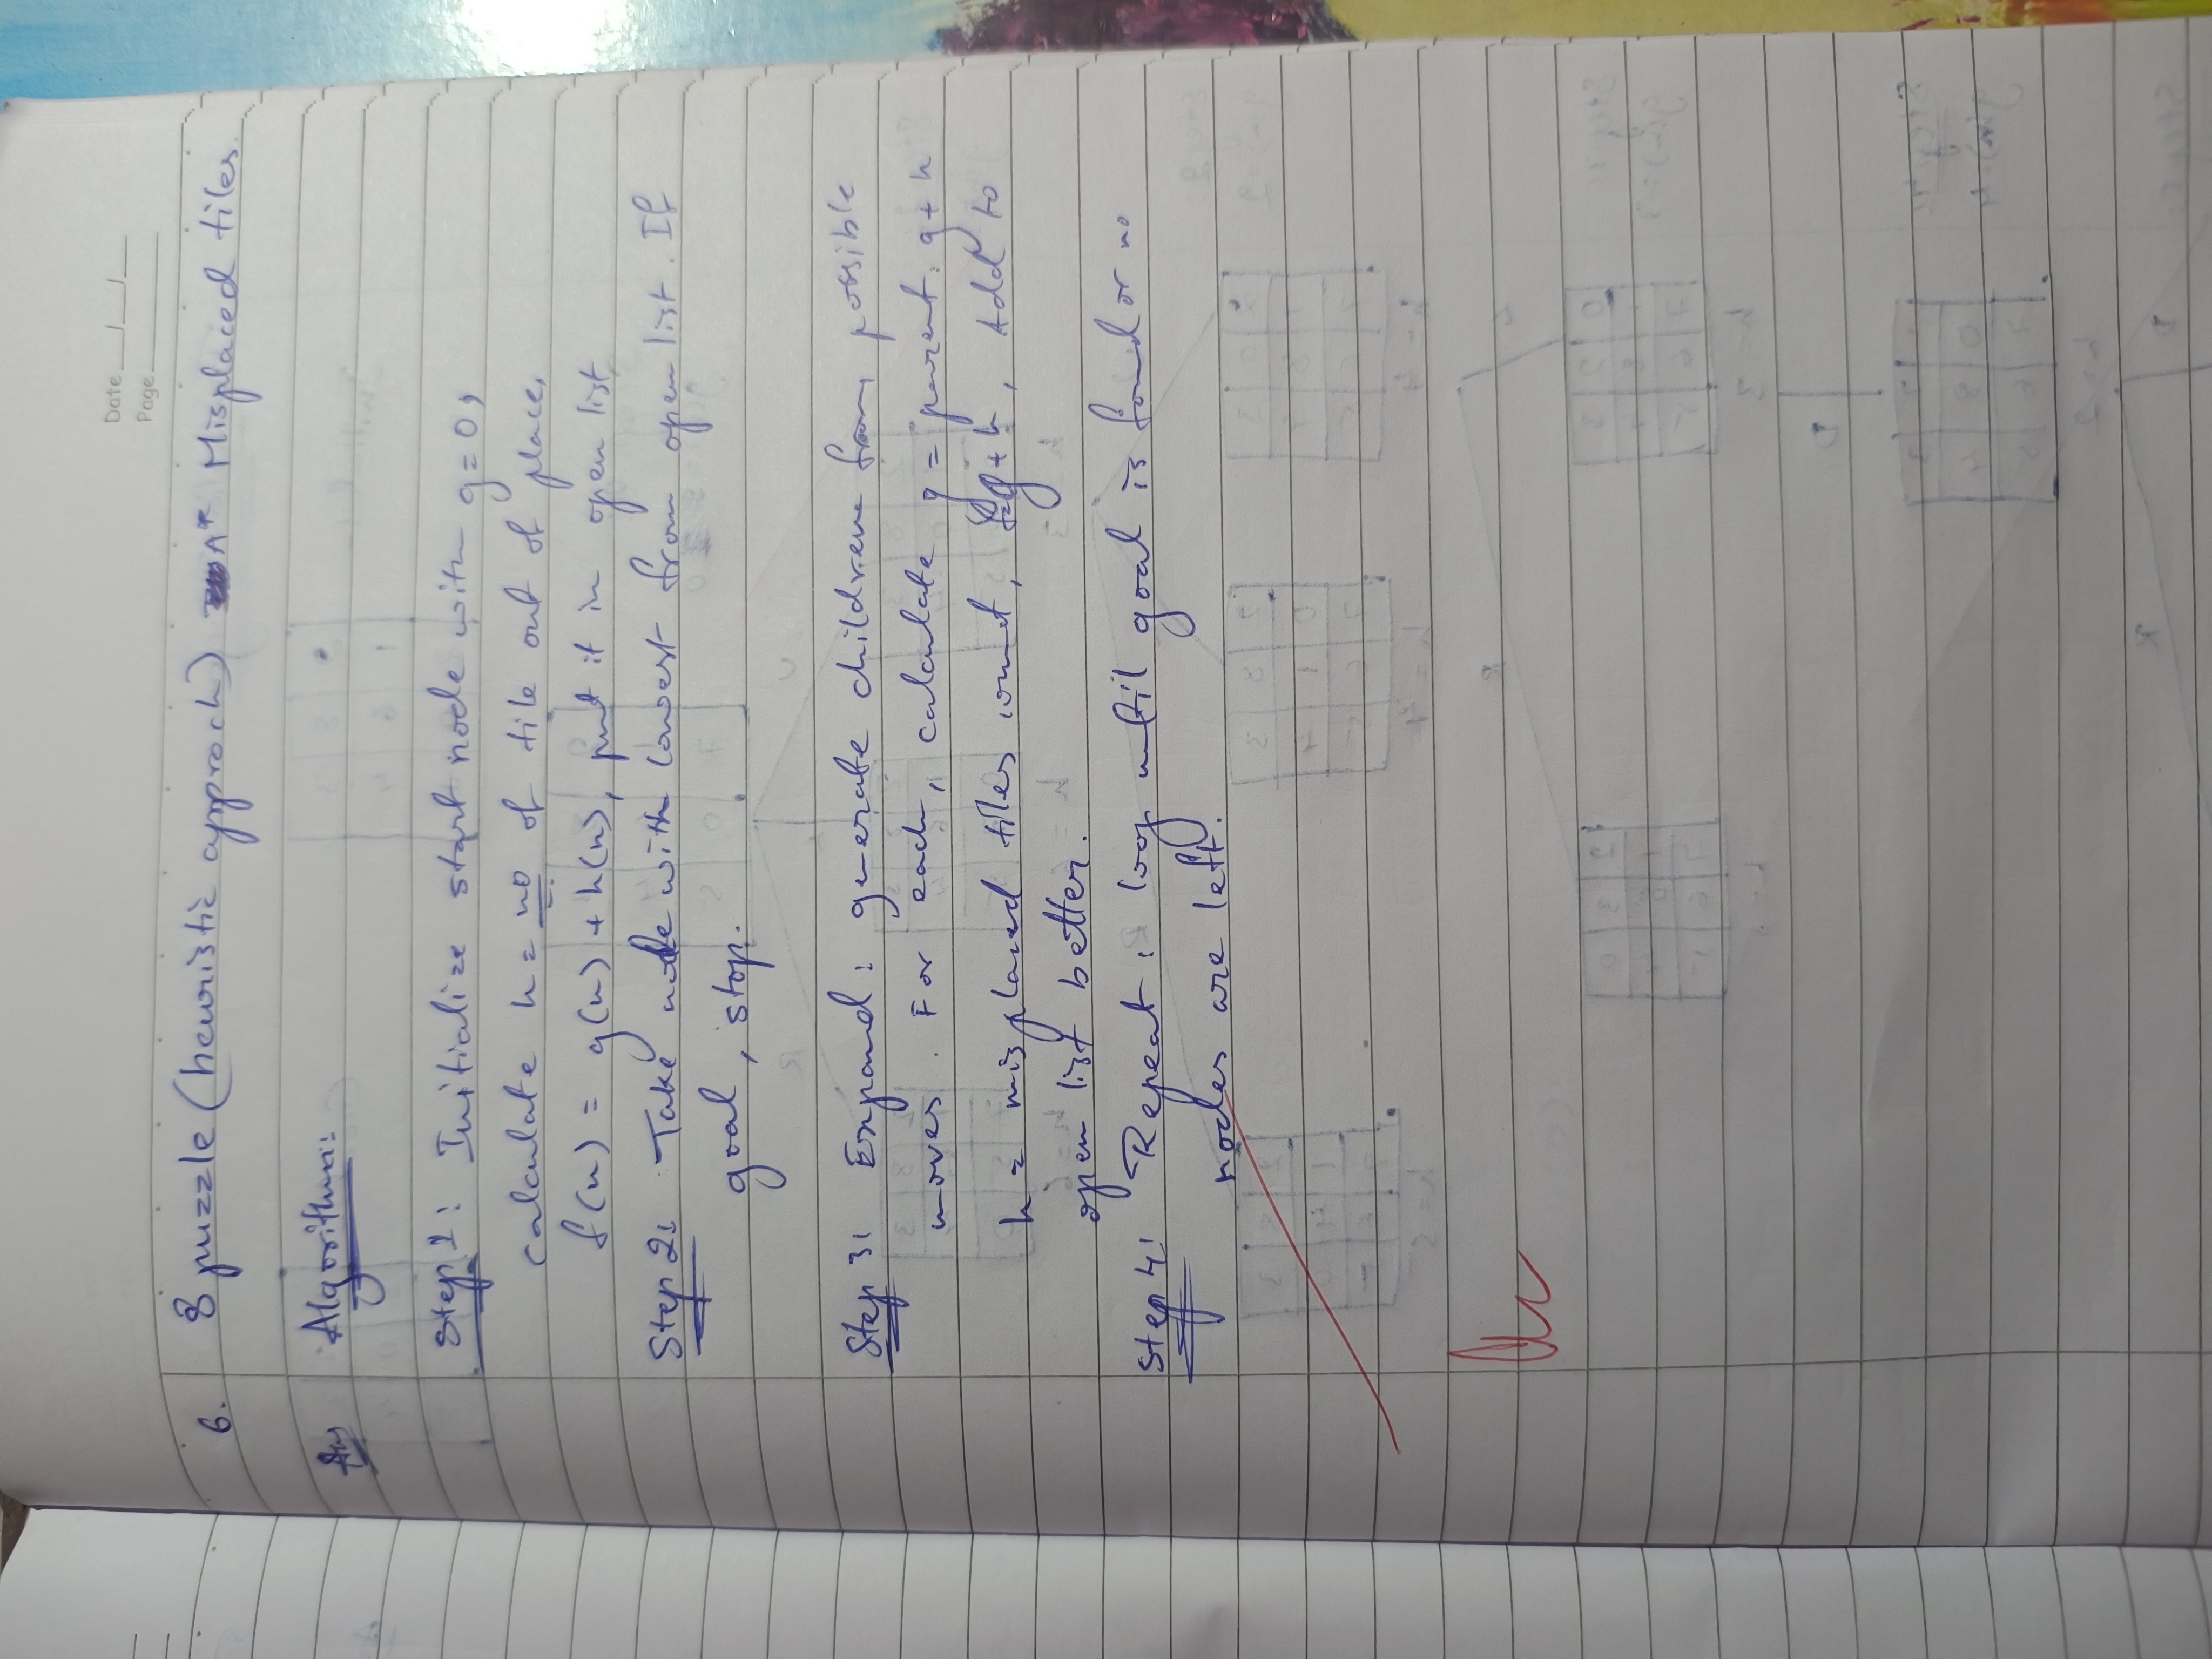 Date __/__/__
Page ______
6. 8 puzzle (heuristic approch) A* Misplaced tiles.
Ans Algorithm:
Step 1: Initialize start node with g=0,
calculate h = no of tile out of place,
f(n) = g(n) + h(n), put it in open list
Step 2: Take node with lowest from open list. If
goal, stop.
Step 3: Expand: generate children from possible
moves. For each, calculate g = parent. g + h
h = misplaced tiles count, f=g+h, Add to
open list better.
Step 4: Repeat: loop until goal is found or no
nodes are left.